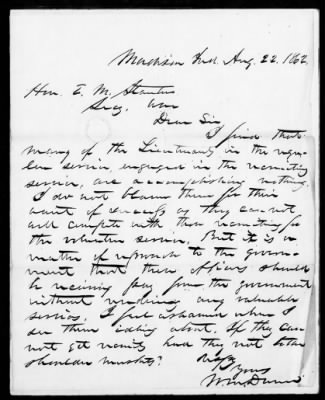 Madison Ind. Aug. 22. 1862
Hon. E. M. Stanton
Secy. War
Dear Sir
I find that
many of the Lieutenants in the regu-
lar service engaged in the recruiting
service, are accomplishing nothing.
I do not blame them for their
want of success as they can not
well compete with those recruiting for
the volunteer service. But it is a
matter of reproach to the govern-
ment that these officers should
be receiving pay from the government
without rendering any valuable
service. I feel ashamed when I
see them idling about. If they can
not get recruits had they not better
shoulder muskets?
Yours